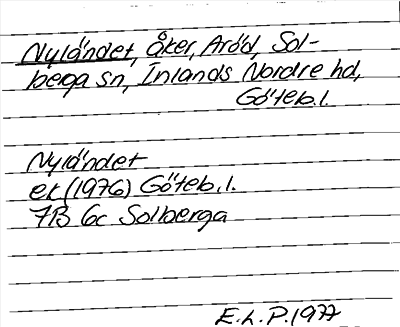 Nyländet, Åker, Aröd, Sol-
berga sn, Inlands Nordre hd,
Göteb.l.
Nyländet
ek (1976) Göteb.l.
7B 6c Solberga
E.L.P.1977